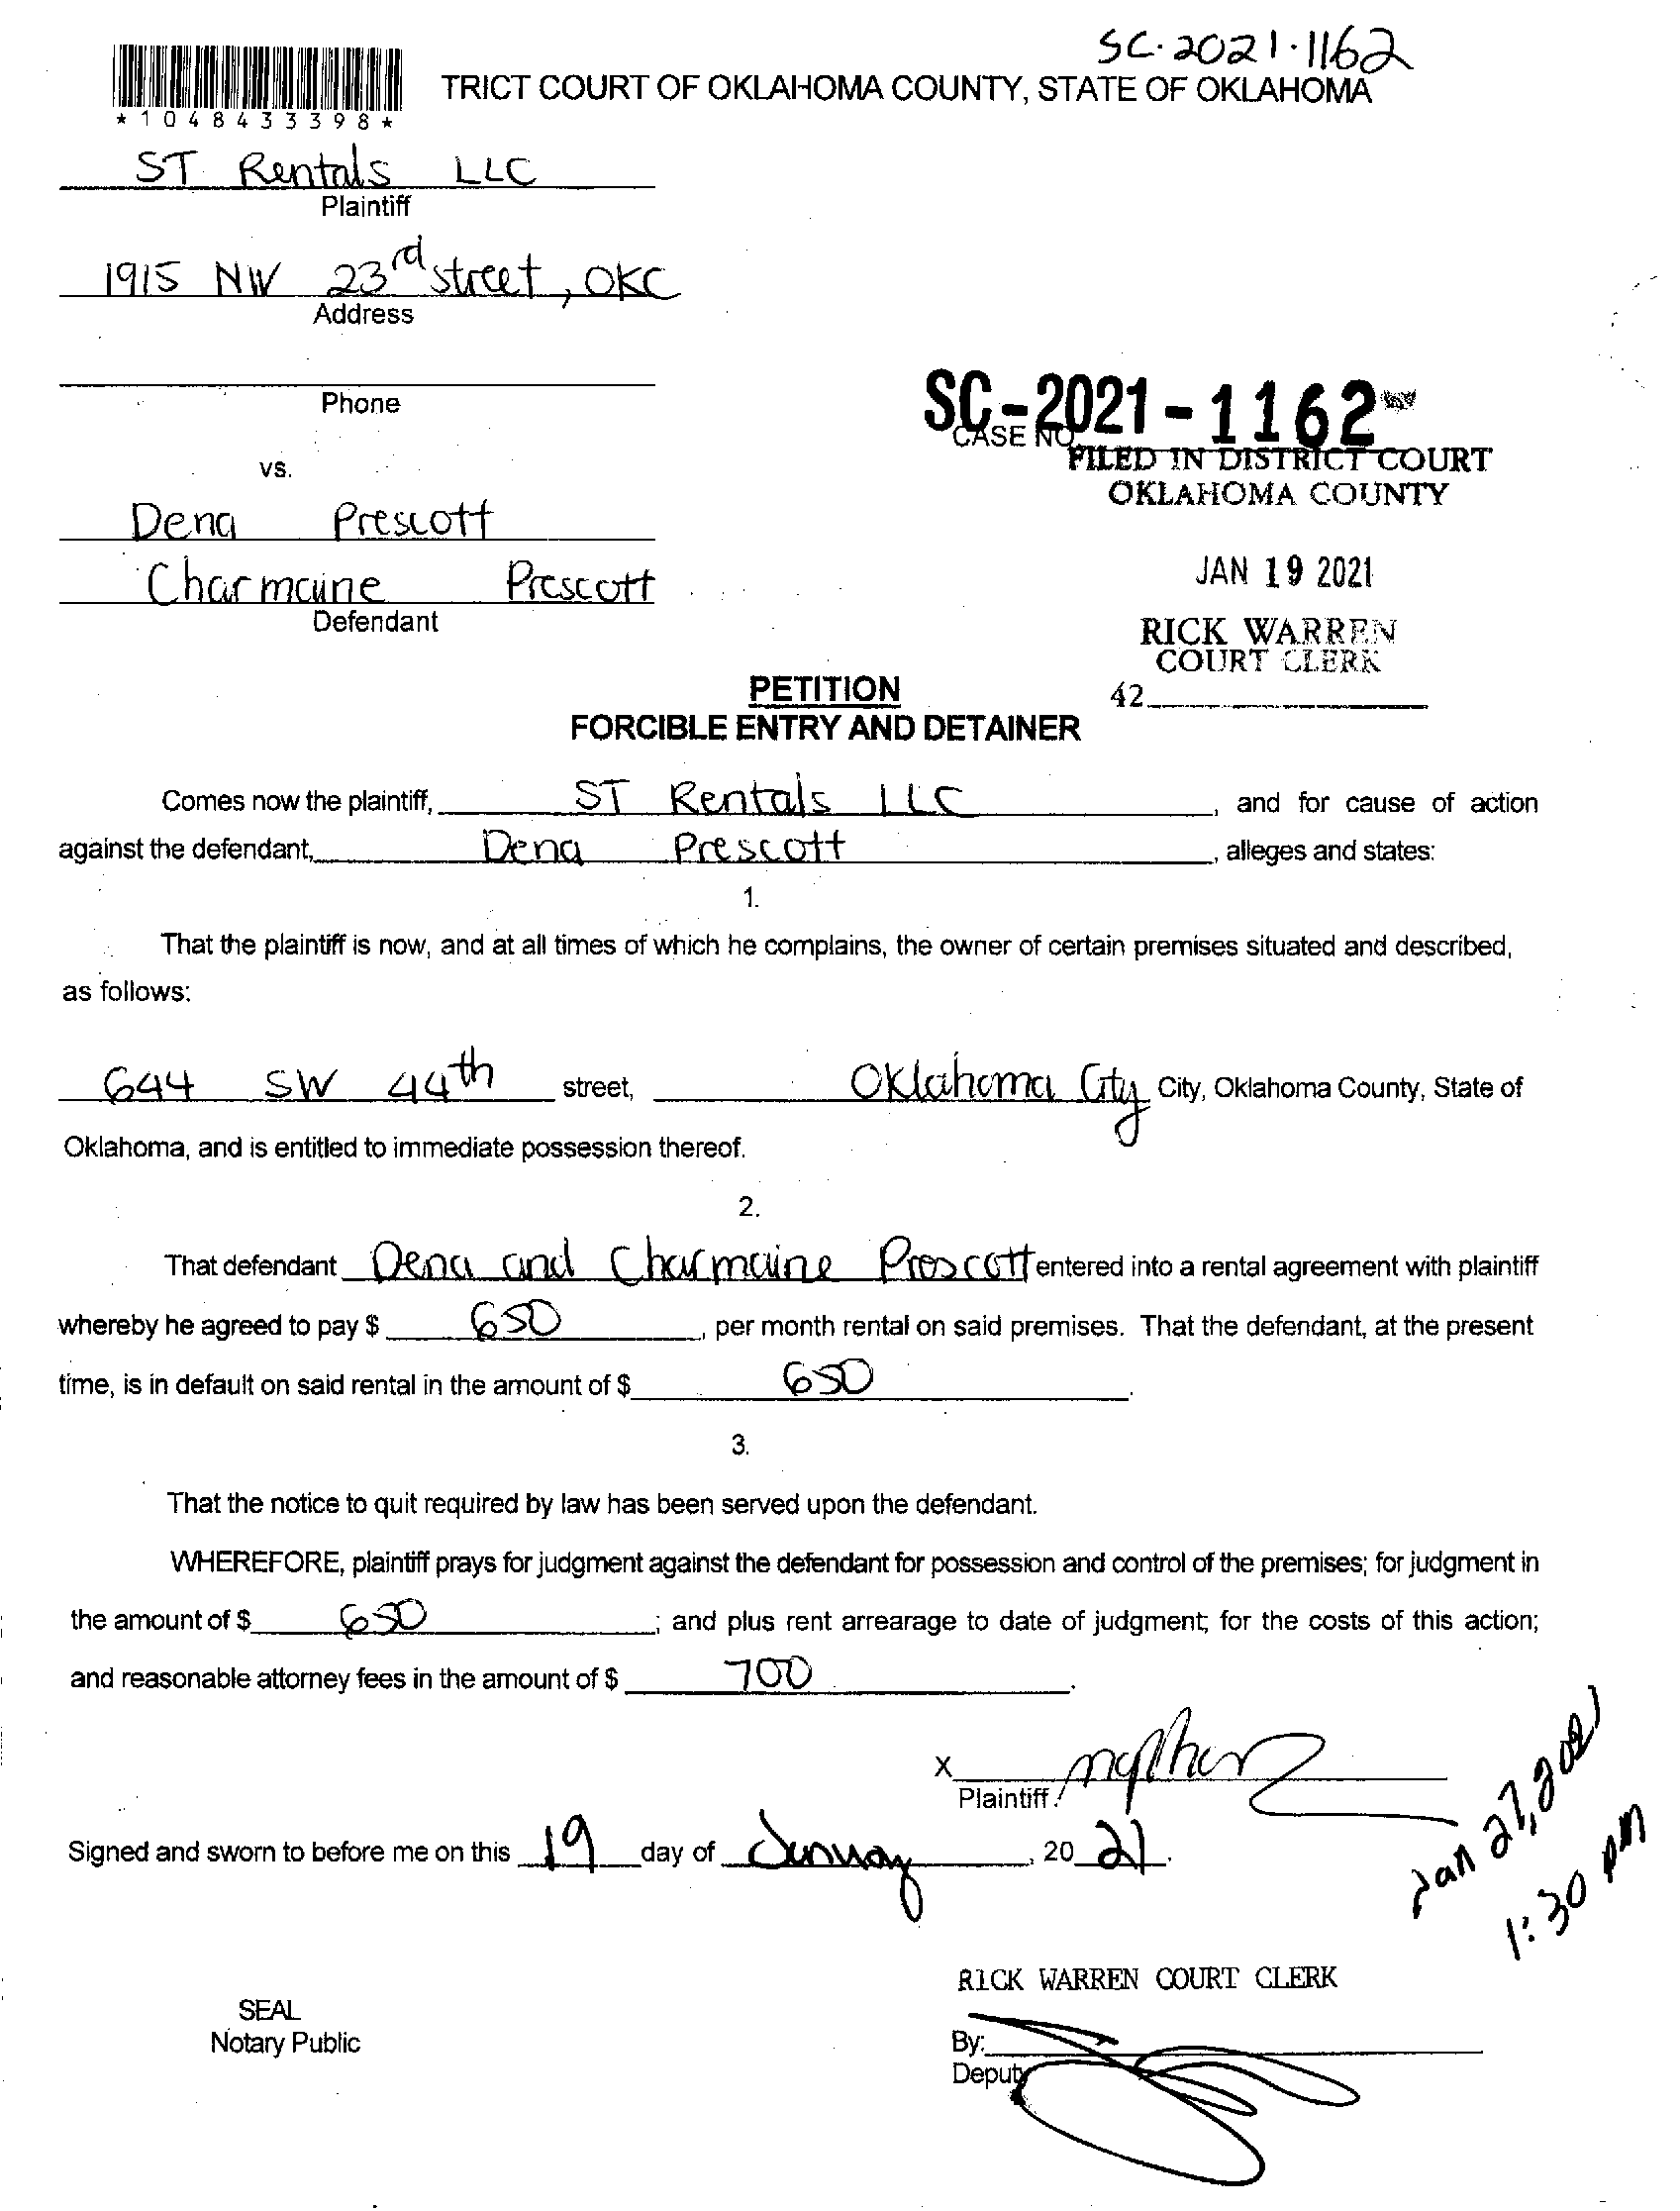 SC-2021-1162
TRICT COURT OF OKLAHOMA COUNTY, STATE OF OKLAHOMA
*1048433398*
ST Rentals LLC
Plaintiff
1915 NW 23rd street, OKC
Address
Phone
SC-2021-1162
CASE NO.
FILED IN DISTRICT COURT
vs.
OKLAHOMA COUNTY
Dena Prescott
JAN 19 2021
Charmaine Prescott
Defendant
RICK WARREN
COURT CLERK
42
PETITION
FORCIBLE ENTRY AND DETAINER
Comes now the plaintiff, ST Rentals LLC, and for cause of action
against the defendant, Dena Prescott, alleges and states:
1.
That the plaintiff is now, and at all times of which he complains, the owner of certain premises situated and described,
as follows:
644 SW 44th street, Oklahoma City City, Oklahoma County, State of
Oklahoma, and is entitled to immediate possession thereof.
2.
That defendant Dena and Charmaine Prescott entered into a rental agreement with plaintiff
whereby he agreed to pay $ 650, per month rental on said premises. That the defendant, at the present
time, is in default on said rental in the amount of $ 650.
3.
That the notice to quit required by law has been served upon the defendant.
WHEREFORE, plaintiff prays for judgment against the defendant for possession and control of the premises; for judgment in
the amount of $ 650; and plus rent arrearage to date of judgment; for the costs of this action;
and reasonable attorney fees in the amount of $ 700.
X
Plaintiff
Signed and sworn to before me on this 19 day of January, 20 21.
Jan 27, 2021
1:30 pm
RICK WARREN COURT CLERK
SEAL
Notary Public
By:
Deputy